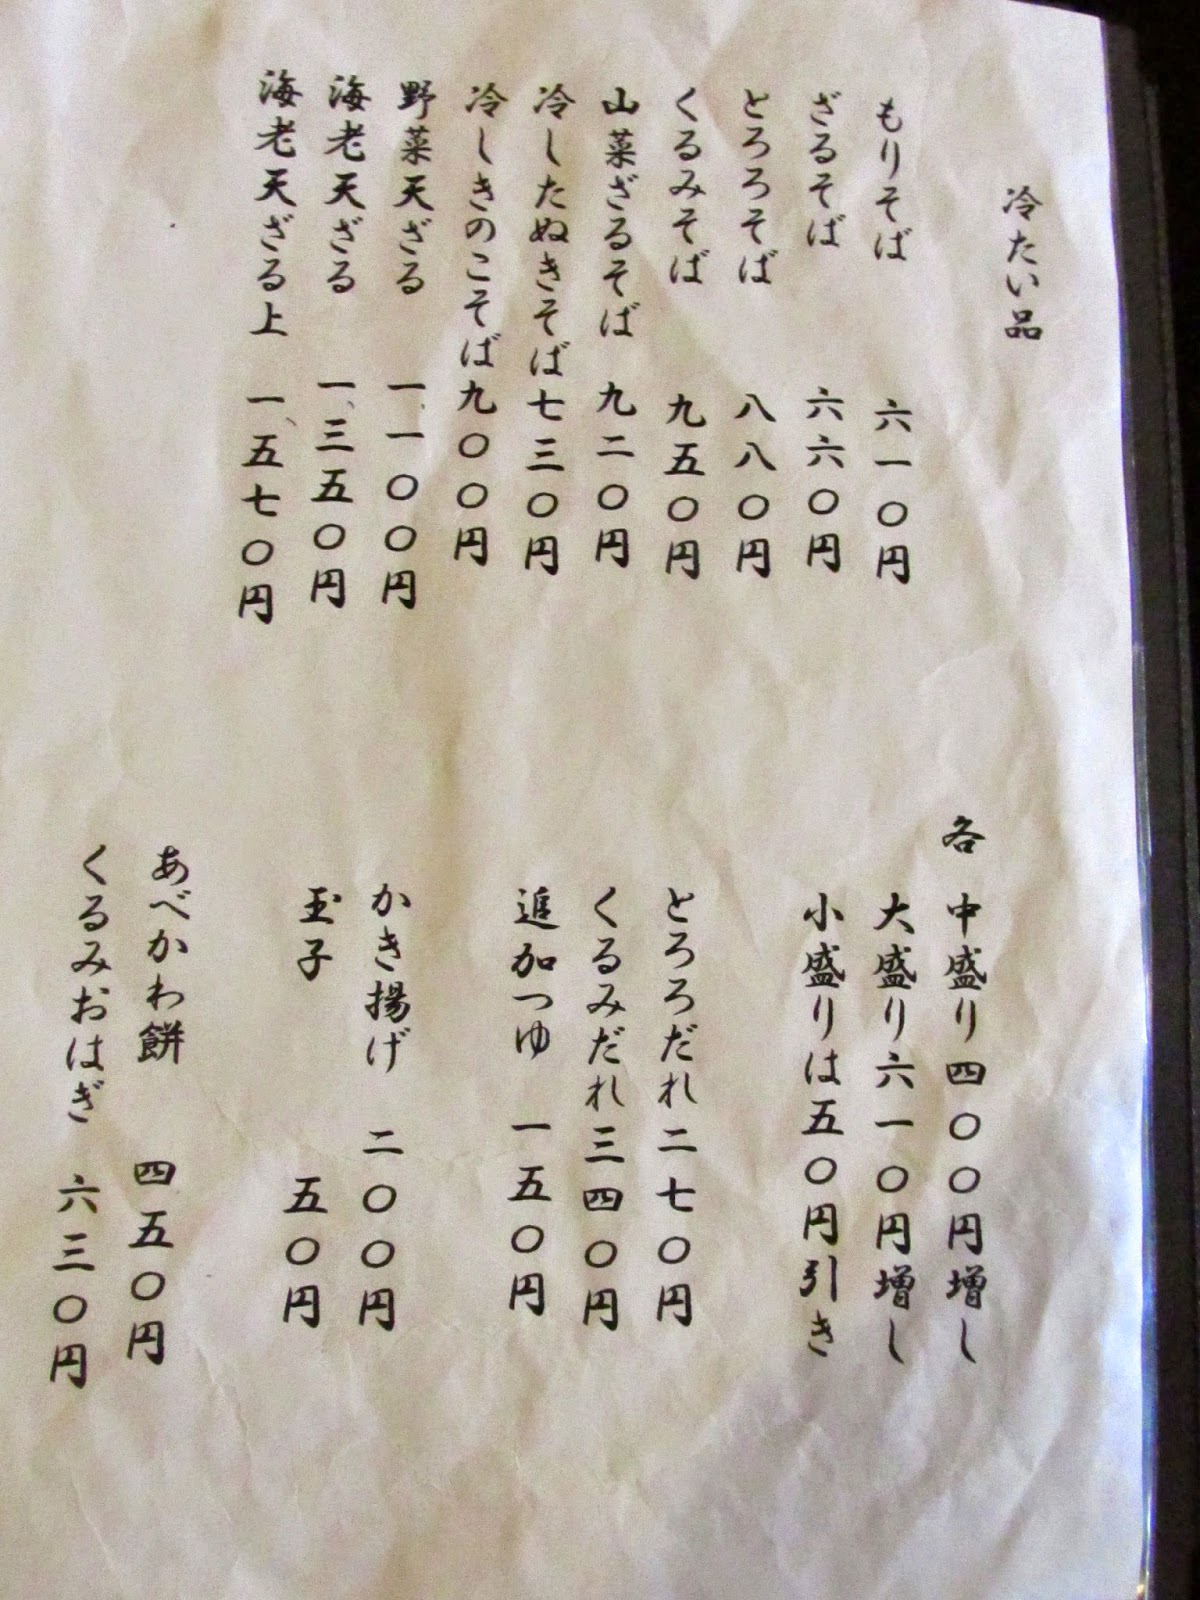 冷たい品
もりそば 六一〇円
ざるそば 六六〇円
とろろそば 八八〇円
くるみそば 九五〇円
山菜ざるそば 九二〇円
冷したぬきそば 七三〇円
冷しきのこそば 九〇〇円
野菜天ざる 一、一〇〇円
海老天ざる 一、三五〇円
海老天ざる上 一、五七〇円
各 中盛り四〇〇円増し
大盛り六一〇円増し
小盛りは五〇円引き
とろろだれ二七〇円
くるみだれ三四〇円
追加つゆ 一五〇円
かき揚げ 二〇〇円
玉子 五〇円
あべかわ餅 四五〇円
くるみおはぎ 六三〇円